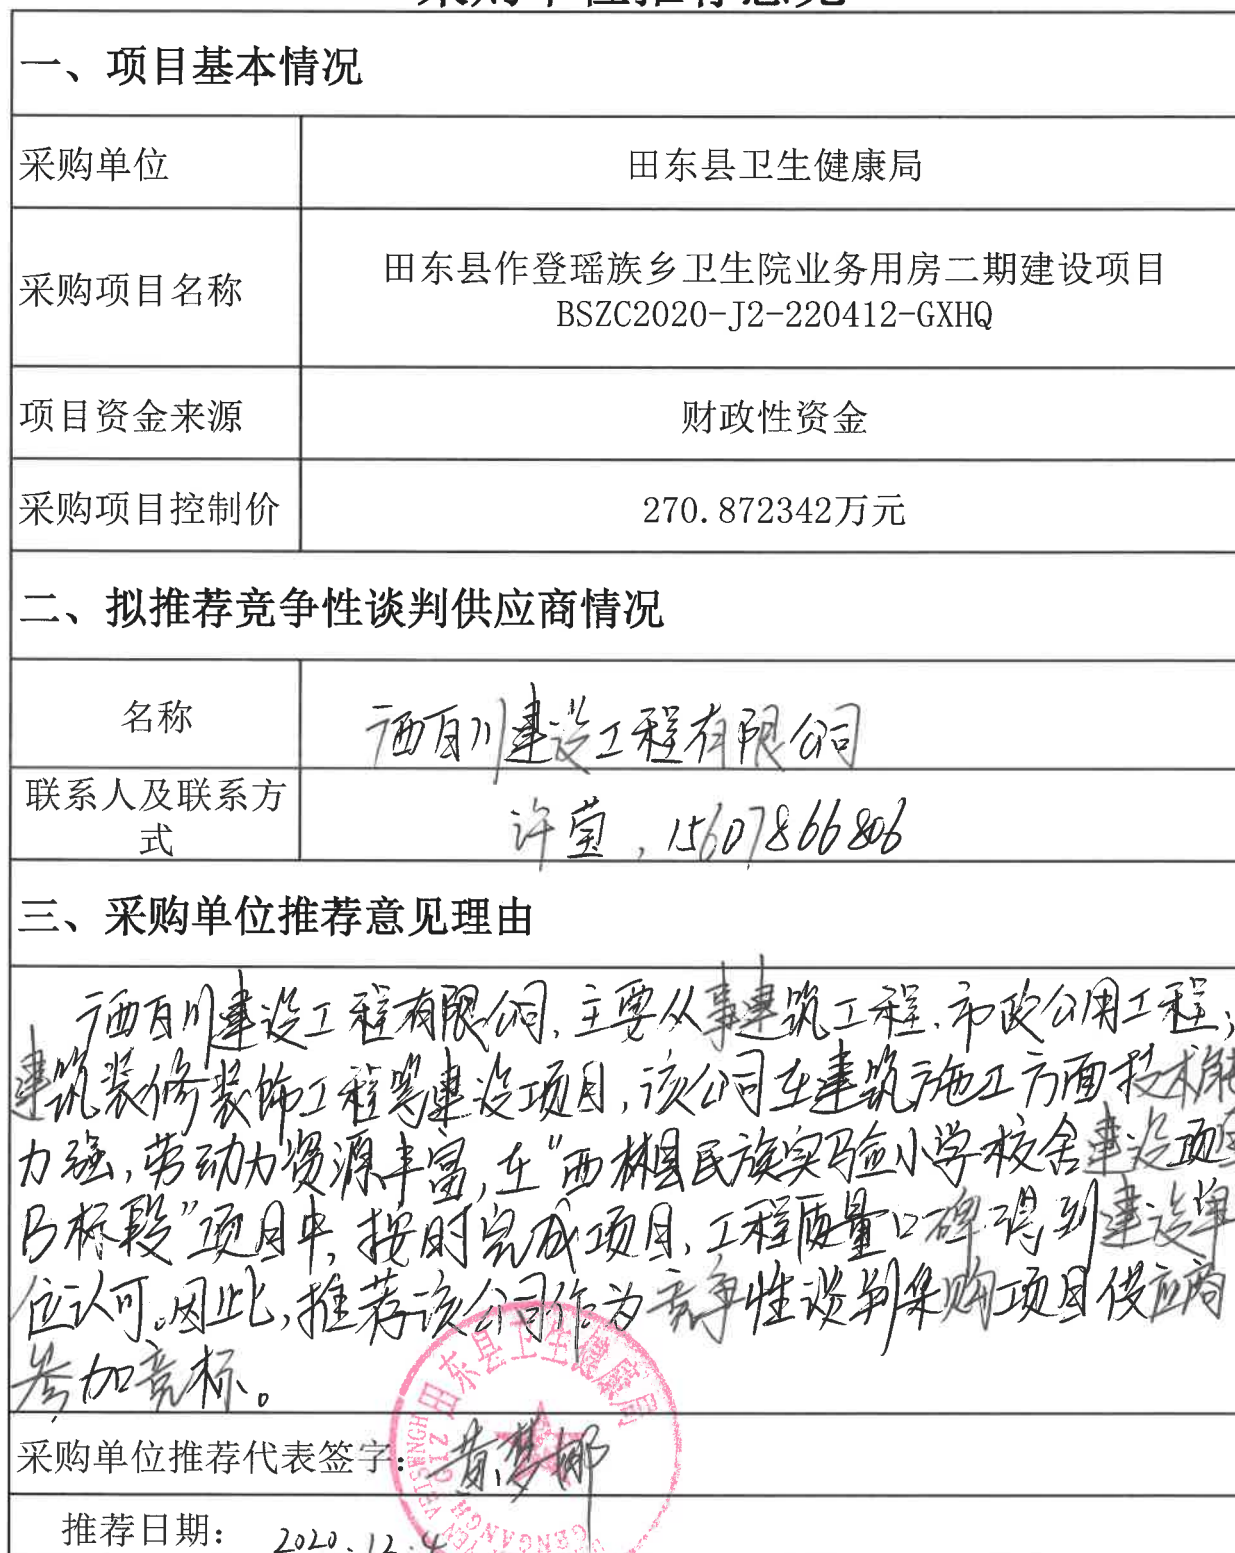 采购单位推荐意见
一、项目基本情况
采购单位
田东县卫生健康局
采购项目名称
田东县作登瑶族乡卫生院业务用房二期建设项目
BSZC2020-J2-220412-GXHQ
项目资金来源
财政性资金
采购项目控制价
270.872342万元
二、拟推荐竞争性谈判供应商情况
名称
广西百川建设工程有限公司
联系人及联系方
式
许莹，15607866806
三、采购单位推荐意见理由
广西百川建设工程有限公司，主要从事建筑工程、市政公用工程；
建筑装修装饰工程等建设项目，该公司在建筑施工方面技术能
力强，劳动力资源丰富，在“西林县民族实验小学校舍建设项目
B标段”项目中，按时完成项目，工程质量口碑得到建设单
位认可。因此，推荐该公司作为竞争性谈判采购项目供应商
参加竞标。
田东县卫生健康局
采购单位推荐代表签字：黄梦娜
推荐日期： 2020.12.4